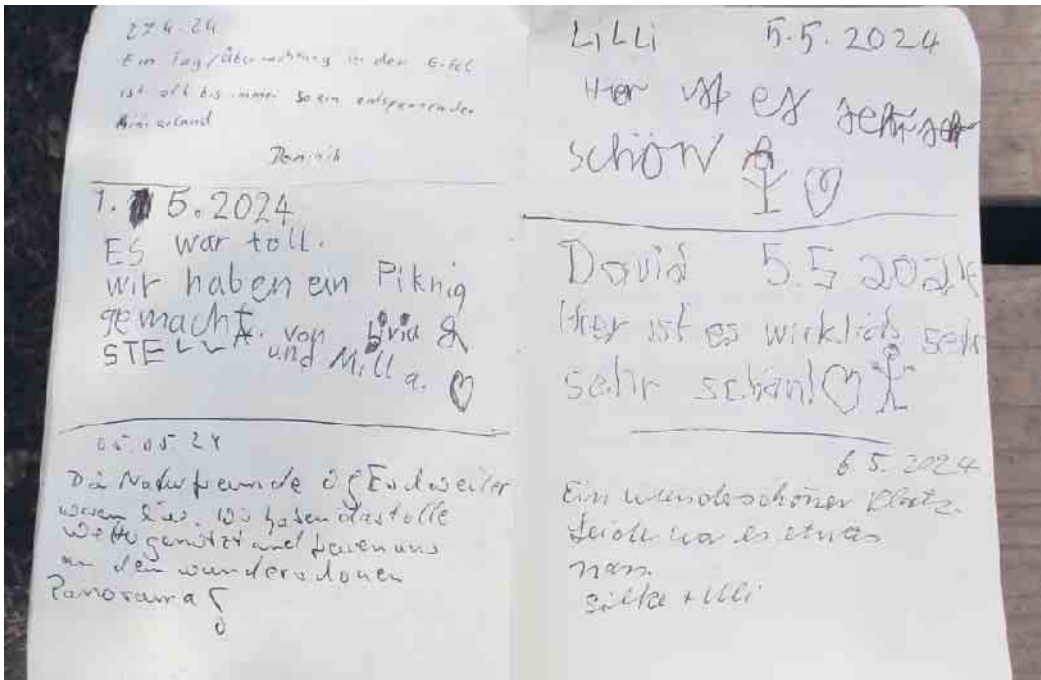 27.4.24
Ein Tag/Übernachtung in der Eifel
ist oft bis immer so ein entspannendes
Dominik
1. 5.2024
ES war toll.
wir haben ein Piknig
gemacht. von Livia &
STELLA und Milla.
05.05.24
Die Naturfreunde OG Eschweiler
waren hier. Wir haben das tolle
Wetter genutzt und freuen uns
an dem wunderschönen
Panorama
LiLLi 5.5.2024
Hier ist es sehr sehr
schön
David 5.5 2024
Hier ist es wirklich sehr
sehr schön!
6.5.2024
Ein wunderschöner Platz.
Leider war es etwas
nass.
Silke + Ulli